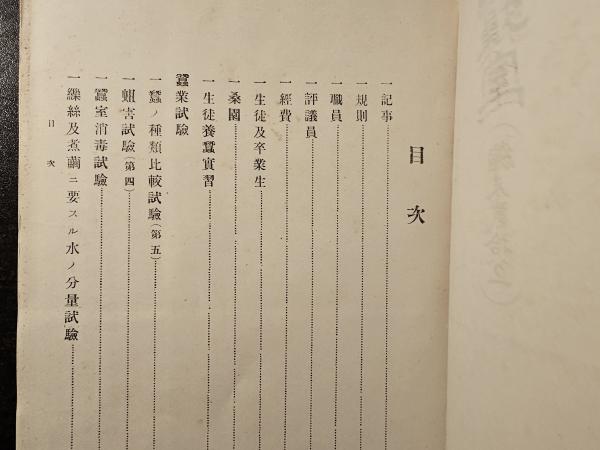 目次
一記事
一規則
一職員
一評議員
一經費
一生徒及卒業生
一桑園
一生徒養蠶實習
蠶業試驗
一蠶ノ種類比較試驗(第五)
一蛆害試驗(第四)
一蠶室消毒試驗
一繰絲及煮繭ニ要スル水ノ分量試驗
目次